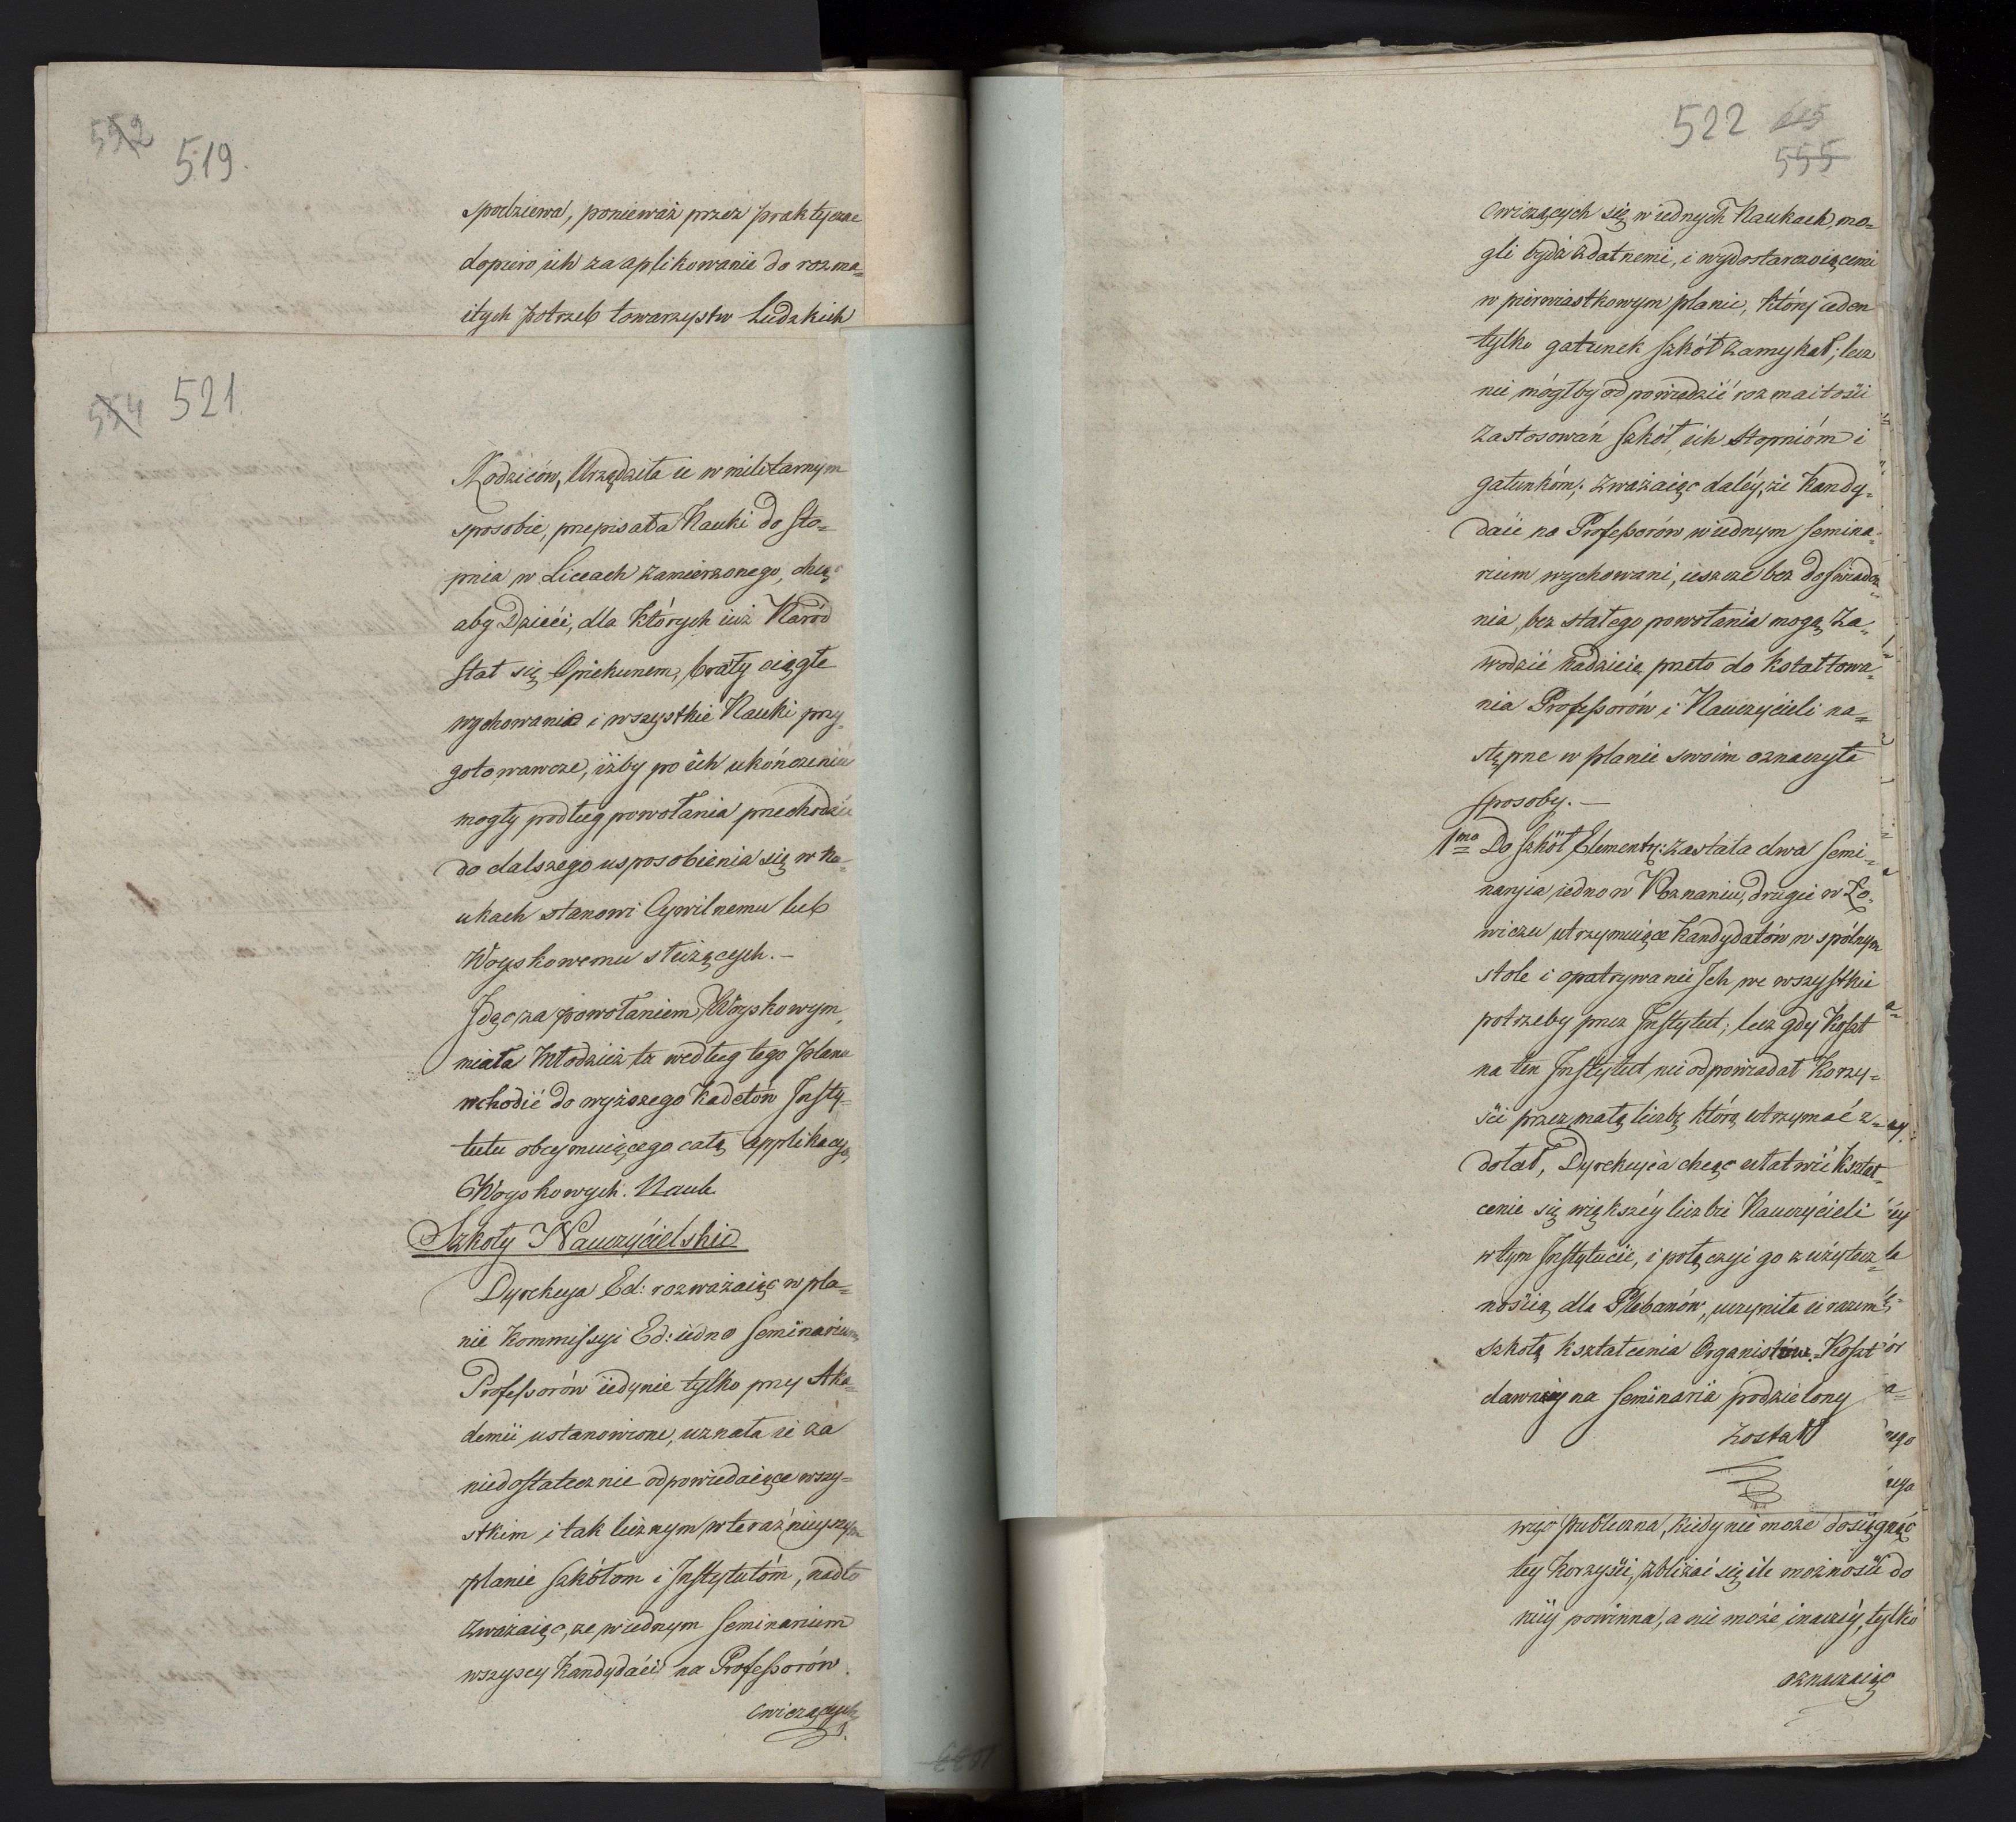 552
519.
spodziewa, ponieważ przez praktyczne
dopiero ich zaaplikowanie do rozma=
itych potrzeb towarzystw Ludzkich
554
521.
Rodziców, Urządziła ie w militarnym
sposobie, przepisała Nauki do sto=
pnia w Liceach zamierzonego, chcąc
aby Dzieći, dla których iuż Naród
stał się Opiekunem, brały ciągłe
wychowanie i wszystkie Nauki przy=
gotowawcze, iżby po ich ukończeniu
mogły podług powołania przechodzić
do dalszego usposobienia się w Na=
ukach stanowi Cywilnemu lub
Woyskowemu służących. –
Idąc za powołaniem Woyskowym,
miała Młodzież ta według tego planu
wchodić do wyższego Kadetów Insty=
tutu obeymuiącego całą applikacyą
Woyskowych Nauk.
Szkoły Nauczyćielskie
Dyrekcya Ed: rozważaiąc w pla=
nie Kommissyi Ed: iedno Seminarium
Professorów iedynie tylko przy Aka=
demii ustanowione, uznała ie za
niedostatecznie odpowiedaiące wszy=
stkim i tak licznym w teraźnieyszym
planie szkołom i Instytutóm, nadto
zważaiąc, że w iednym Seminarium
wszyscy Kandydaći na Professorów
cwiczących
522 615
555
cwiczących się w iednych Naukach, mo=
gli bydź zdatnemi, i wydostarczaiącemi
w pierwiastkowym planie, który ieden
tylko gatunek szkół zamykał; lecz
nie mógłby odpowiedzić rozmaitośći
zastosowań szkół, ich stopnióm i
gatunkóm; zważaiąc daléy, że Kandy=
daći na Professorów w iednym Semina=
rium wychowani, ieszcze bez doświadcz=
nia, bez stałego powołania mogą za=
wodzić nadzieię, przeto do kształtowa=
nia Professorów i Nauczyćieli na=
stępne w planie swoim oznaczyła
sposoby. –
1mo Do szkół Elementr: zastała dwa Semi=
narya iedno w Poznaniu, drugie w Ło=
wiczu utrzymuiące Kandydatów w spólnym
stole i opatrywanie Ich we wszystkie
potrzeby przez Instytut; lecz gdy koszt
na ten Instytut nie odpowiadał korzy=
śći przez małą liczbę którą utrzymać z=
dołał, Dyrekcyia chcąc ułatwić kształ=
cenie się większéy liczbie Nauczyćieli
w tym Instytucie, i połączyć go z użytecz=
nośćią dla Plebanów, uczyniła ie razem
szkołą kształcenia Organistów. Koszt
dawniéy na Seminaria podzielony
został
wcio publiczna, kiedy nie może dosięgnąć
tey korzyśći, zbliżać się ile możnośći do
niéy powinna, a nie może inaczéy, tylko
oznaczaiąc